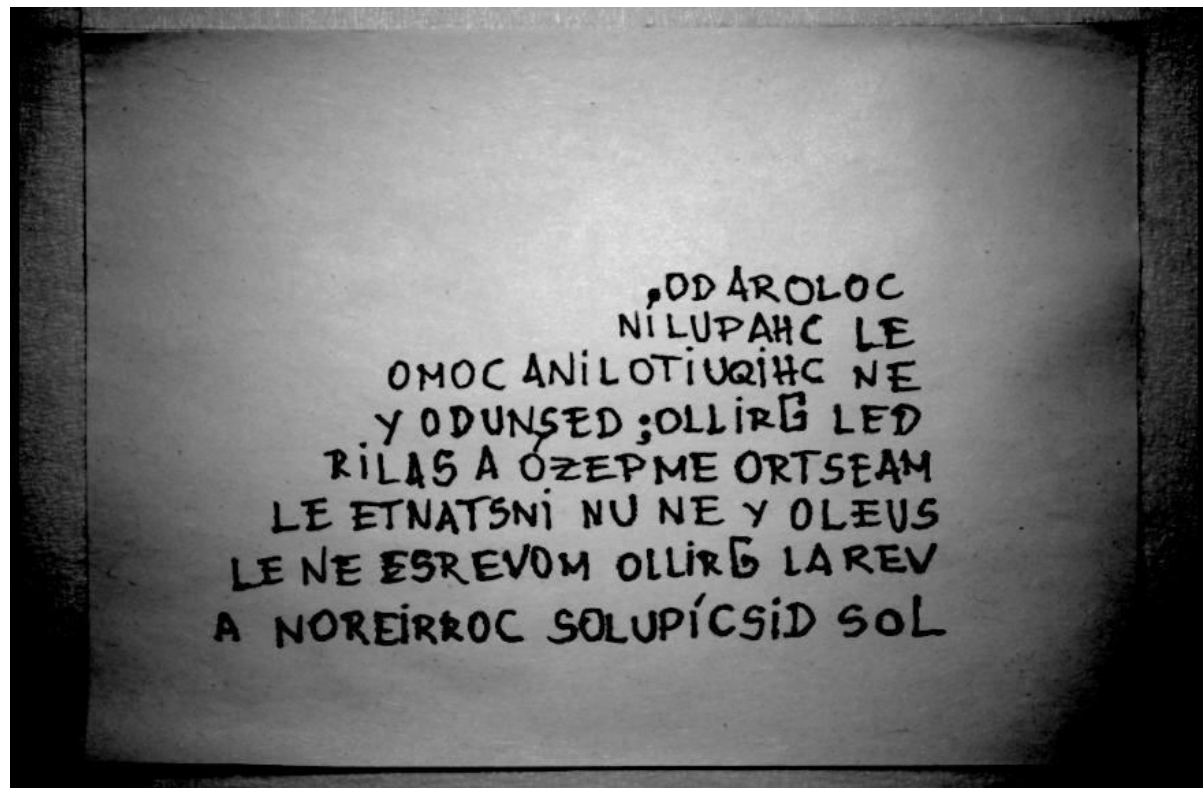 ,OD AROLOC
NILUPAHC LE
OMOC ANILOTIUQIHC NE
Y ODUNSED ;OLLIRG LED
RILAS A ÓZEPME ORTSEAM
LE ETNATSNI NU NE Y OLEUS
LE NE ESREVOM OLLIRG LA REV
A NOREIRROC SOLUPÍCSID SOL